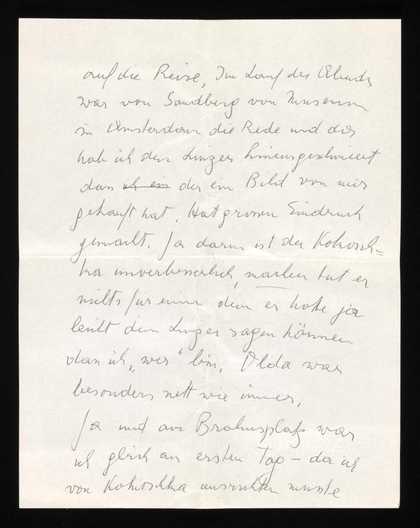 auf die Reise, Im Lauf des Abends
war von Sandberg von Museum
in Amsterdam die Rede und da
hab ich den Singer hineingeschmiert
dass der ein Bild von mir
gekauft hat. Hat grossen Eindruck
gemacht. Ja darum ist der Kokosch=
ka unverbesserlich, machen tut er
nichts für einen denn er hätte ja
leicht dem Singer sagen können
dass ich „wer" bin. Olda war
besonders nett wie immer.
Ja und am Brahmsplatz war
ich gleich am ersten Tag – da ich
von Kokoschka ausrichten musste